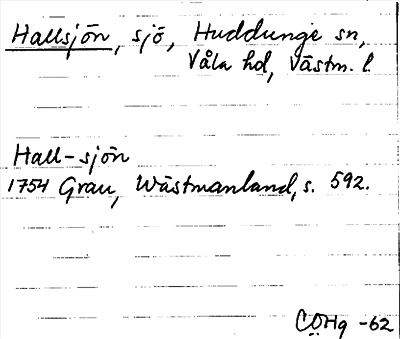 Hallsjön, sjö, Huddunge sn,
Våla hd, Västm. l.
Hall-sjön
1754 Grau, Wästmanland, s. 592.
CÖHg -62